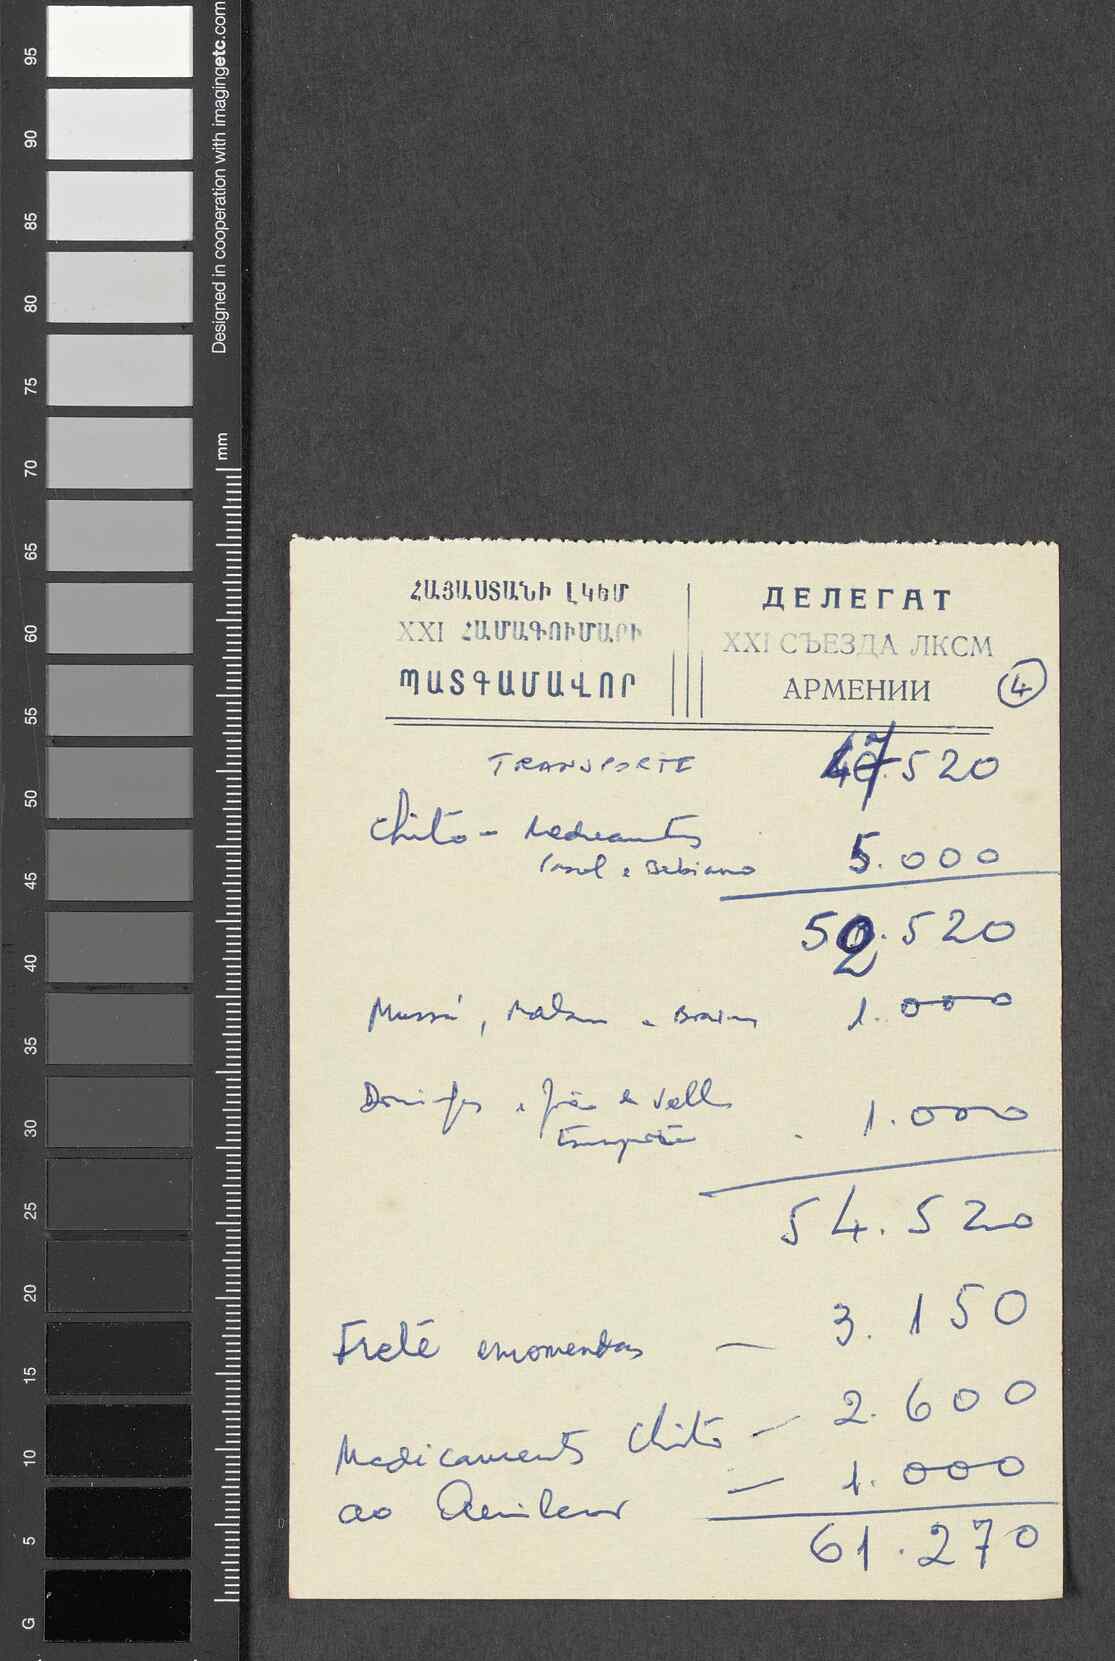 Designed in cooperation with imagingetc.com
mm
95
90
85
80
75
70
65
60
55
50
45
40
35
30
25
20
15
10
5
G
ՀԱՅԱՍՏԱՆԻ ԼԿԵՄ
XXI ՀԱՄԱԳՈՒՄԱՐԻ
ՊԱՏԳԱՄԱՎՈՐ
ДЕЛЕГАТ
XXI СЪЕЗДА ЛКСМ
АРМЕНИИ
4
TRANSPORTE 47.520
Chito - 5.000
e Bebiano
52.520
Mussá, 1.000
Domingos e João de 1.000
54.520
Frete encomendas — 3.150
Medicaments Chito — 2.600
ao — 1.000
61.270